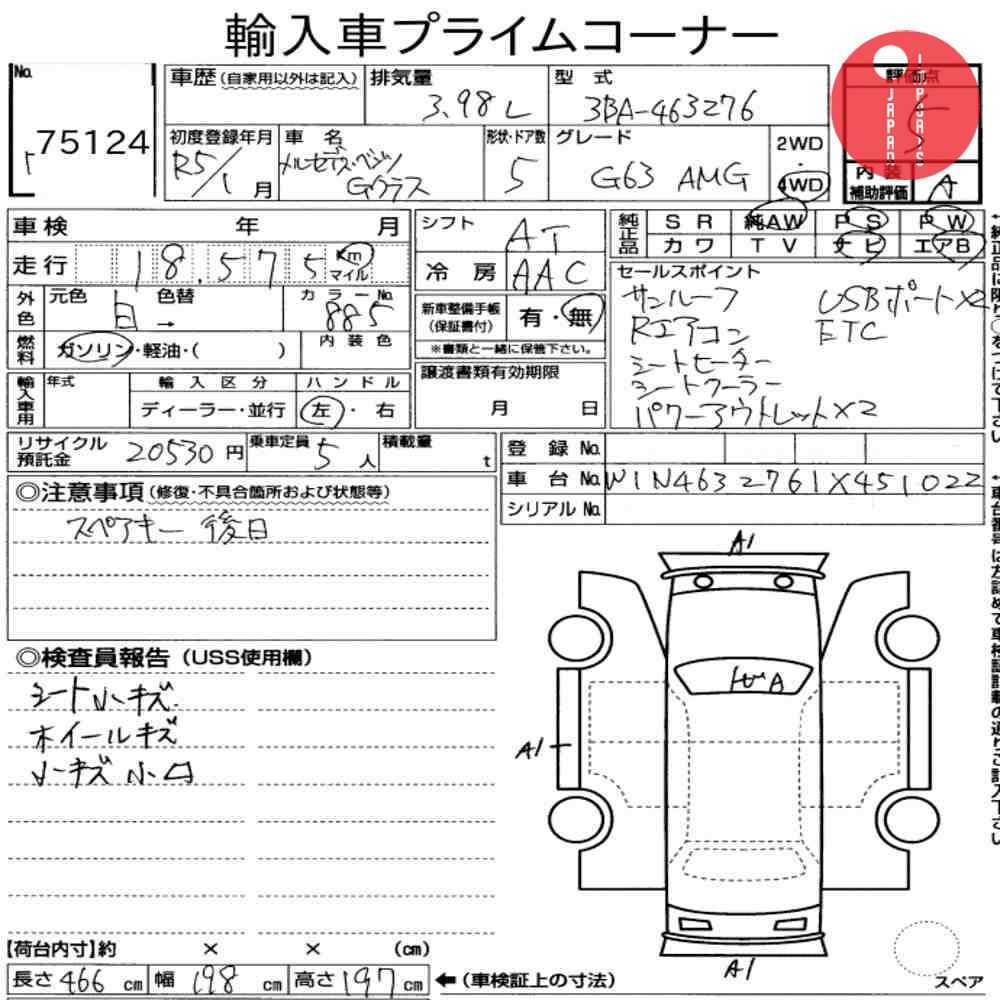 輸入車プライムコーナー
No.
75124
車歴(自家用以外は記入)
排気量
3.98L
型式
3BA-463276
評価点
5
JAPAN
初度登録年月
R5/1月
車名
メルセデス・ベンツ
Gクラス
形状・ドア数
5
グレード
G63 AMG
2WD
・
4WD
内装
補助評価
A
車検 年 月
走行 18,575 Km
マイル
外色
元色
白
色替
→
カラーNo.
885
燃料
ガソリン・軽油・( )
内装色
輸入車用
年式
輸入区分
ディーラー・並行
ハンドル
左・右
シフト
AT
冷房
AAC
新車整備手帳
(保証書付)
有・無
※書類と一緒に保管下さい。
譲渡書類有効期限
月 日
純正品
SR 純AW PS PW
カワ TV ナビ エアB
セールスポイント
サンルーフ USBポート×2
Rエアコン ETC
シートヒーター
シートクーラー
パワーアウトレット×2
リサイクル
預託金
20530円
乗車定員
5人
積載量
t
登録No.
車台No. W1N4632761X451022
シリアルNo.
◎注意事項(修復・不具合箇所および状態等)
スペアキー 後日
◎検査員報告(USS使用欄)
シート小キズ
ホイールキズ
A1
A
A1
A1
【荷台内寸】約 × × (cm)
長さ 466 cm
幅 198 cm
高さ 197 cm
←(車検証上の寸法)
スペア